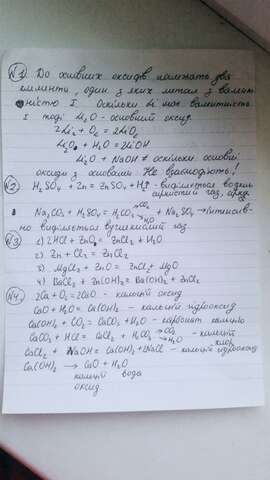 №1) До основних оксидів належать два
елементи, один з яких метал з валент
ністю I. Оскільки Li має валентність
I тоді Li₂O - основний оксид.
2Li + O₂ = 2LiO₂
Li₂O + H₂O = 2LiOH
Li₂O + NaOH ≠ оскільки основні
оксиди з основами не взаємодіють!
№2) H₂SO₄ + Zn = ZnSO₄ + H₂↑ - виділяється водень
сірчистий газ,
Na₂CO₃ + H₂SO₄ = H₂CO₃ CO₂ H₂O + Na₂SO₄ → інтенсив-
но виділяється вуглекислий газ.
№3) 1) 2HCl + ZnO = ZnCl₂ + H₂O
2) Zn + Cl₂ = ZnCl₂
3) MgCl₂ + ZnO = ZnCl₂ + MgO
4) BaCl₂ + Zn(OH)₂ = Ba(OH)₂ + ZnCl₂
№4) 2Ca + O₂ = 2CaO - кальцій оксид
CaO + H₂O = Ca(OH)₂ - кальцій гідрооксид
Ca(OH)₂ + CO₂ = CaCO₃ + H₂O - карбонат кальцію
CaCO₃ + HCl = CaCl₂ + H₂CO₃ CO₂ H₂O - кальцій
хлор
CaCl₂ + NaOH = Ca(OH)₂ + 2NaCl - кальцій гідрооксид
Ca(OH)₂ → CaO + H₂O
кальцій вода
оксид.